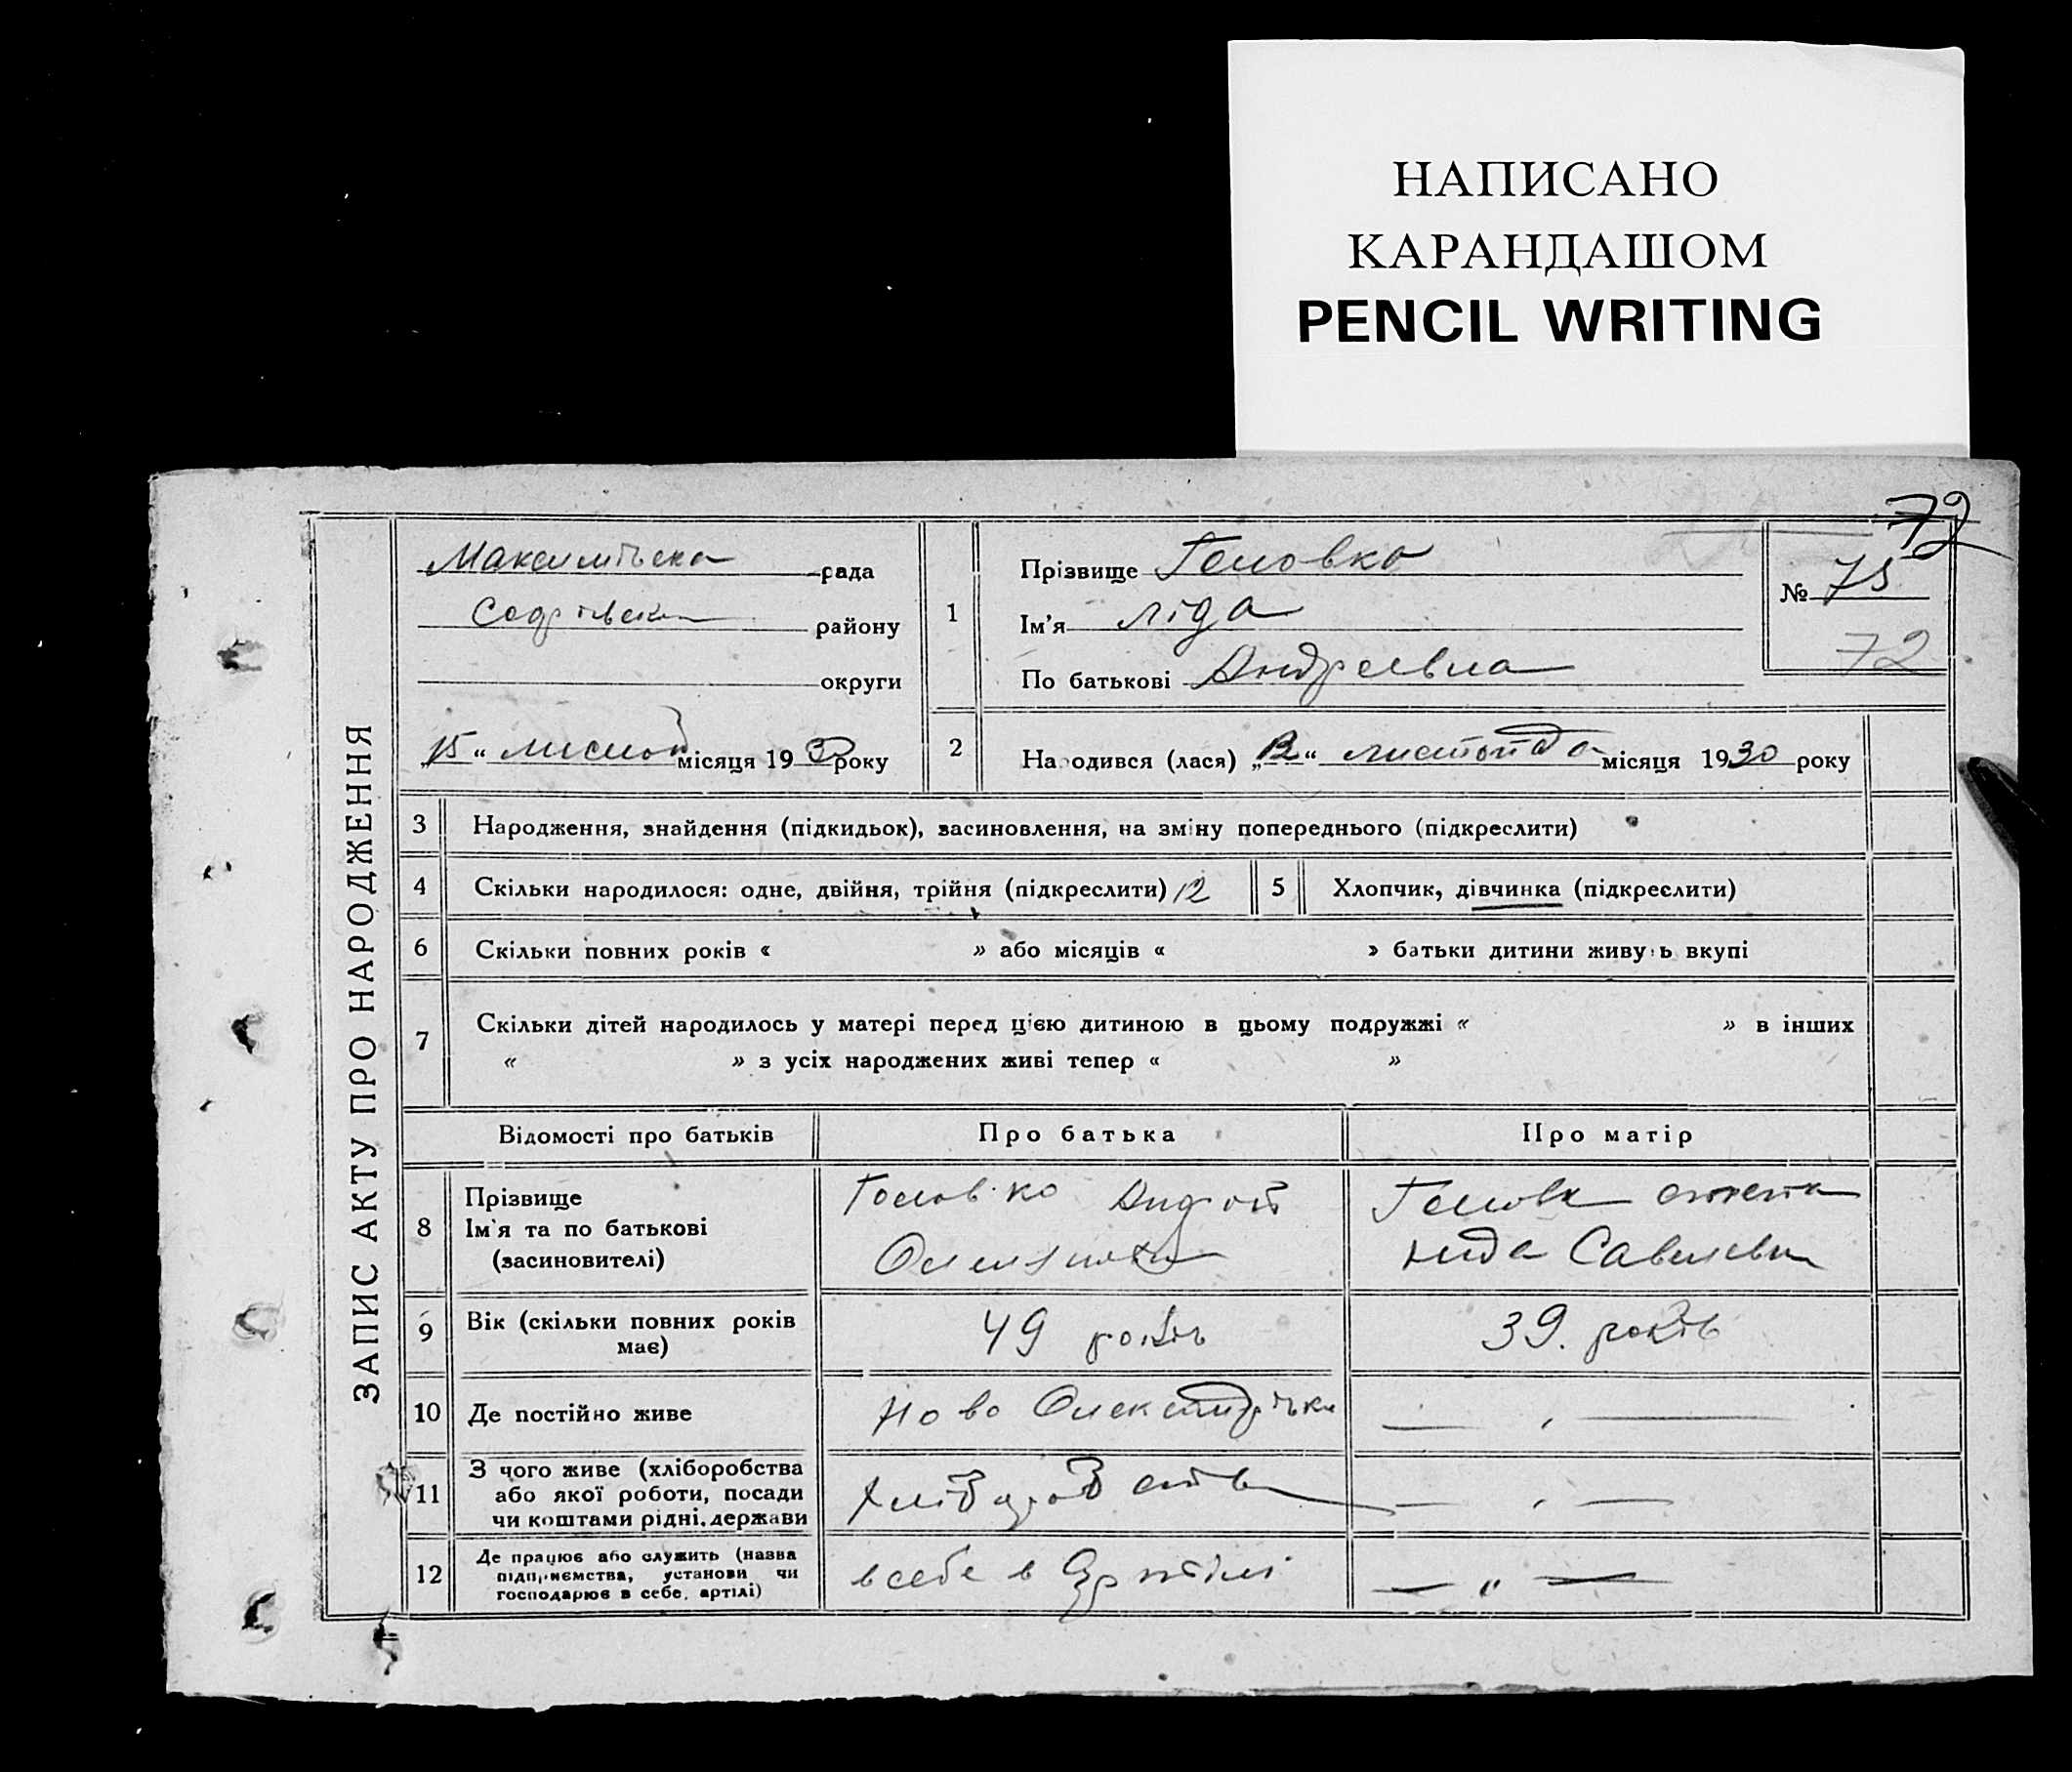 НАПИСАНО
КАРАНДАШОМ
PENCIL WRITING
72
ЗАПИС АКТУ ПРО НАРОДЖЕННЯ
рада
району
округи
„15“ місяця 193 року
1
Прізвище Головко
Ім'я Ліда
По батькові Андреевна
№ 75
72
2
Народився (лася) „12“ листопада місяця 1930 року
3 Народження, знайдення (підкидьок), засиновлення, на зміну попереднього (підкреслити)
4 Скільки народилося: одне, двійня, трійня (підкреслити) 12
5 Хлопчик, дівчинка (підкреслити)
6 Скільки повних років « » або місяців « » батьки дитини живуть вкупі
7 Скільки дітей народилось у матері перед цією дитиною в цьому подружжі « » в інших
« » з усіх народжених живі тепер « »
Відомості про батьків Про батька Про матір
8 Прізвище
Ім'я та по батькові
(засновителі)
Головко Андрій
Савелевн
9 Вік (скільки повних років
має)
49 років
39. років
10 Де постійно живе
Ново Олександрівка
— „ —
11 З чого живе (хліборобства
або якої роботи, посади
чи коштами рідні, держави
Хліборобств
— „ —
12 Де працює або служить (назва
підприємства, установи чи
господарює в себе, артілі)
в себе в Артілі
— „ —